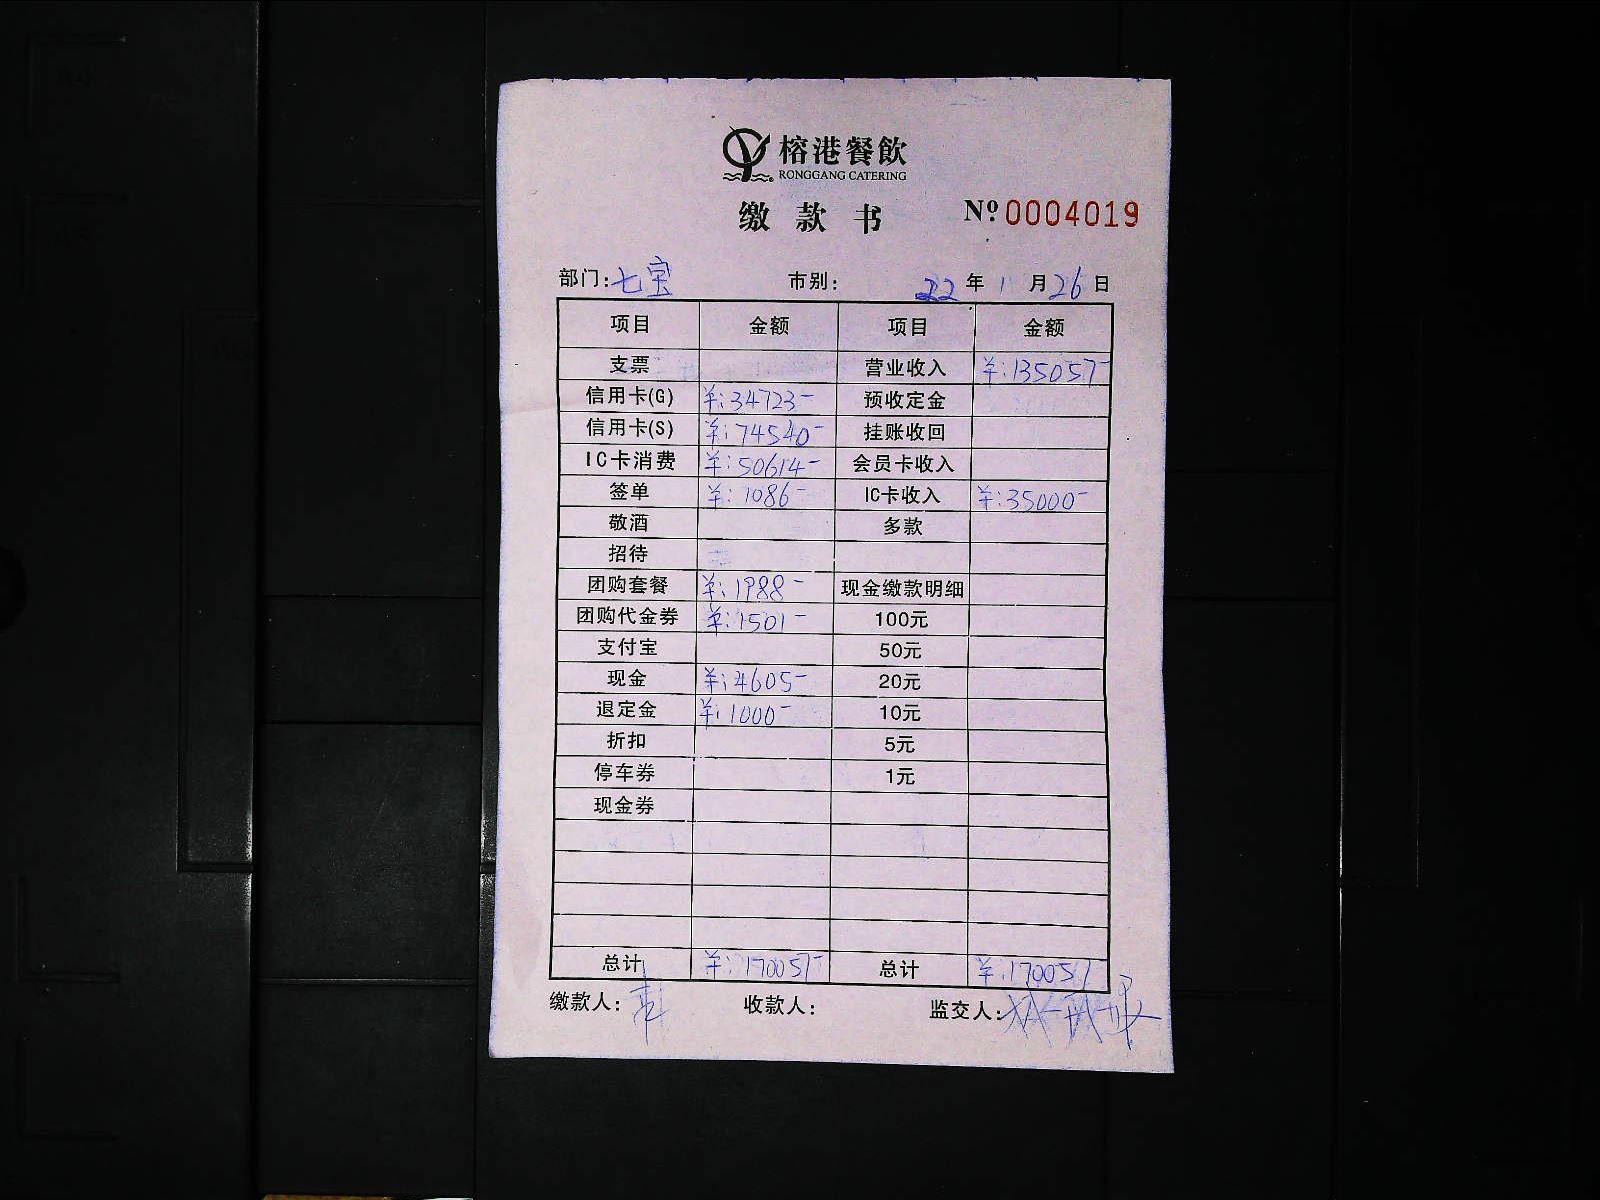 榕港餐飲
RONGGANG CATERING
缴款书 № 0004019
部门:七宝 市别: 22年1月26日
项目 金额 项目 金额
支票 营业收入 ¥:135057-
信用卡(G) ¥:34723- 预收定金
信用卡(S) ¥:74540- 挂账收回
IC卡消费 ¥:50614- 会员卡收入
签单 ¥:1086- IC卡收入 ¥:35000-
敬酒 多款
招待
团购套餐 ¥:1988- 现金缴款明细
团购代金券 ¥:1501- 100元
支付宝 50元
现金 ¥:4605- 20元
退定金 ¥:1000- 10元
折扣 5元
停车券 1元
现金券
总计 ¥:170057- 总计 ¥:170057
缴款人: 收款人: 监交人: